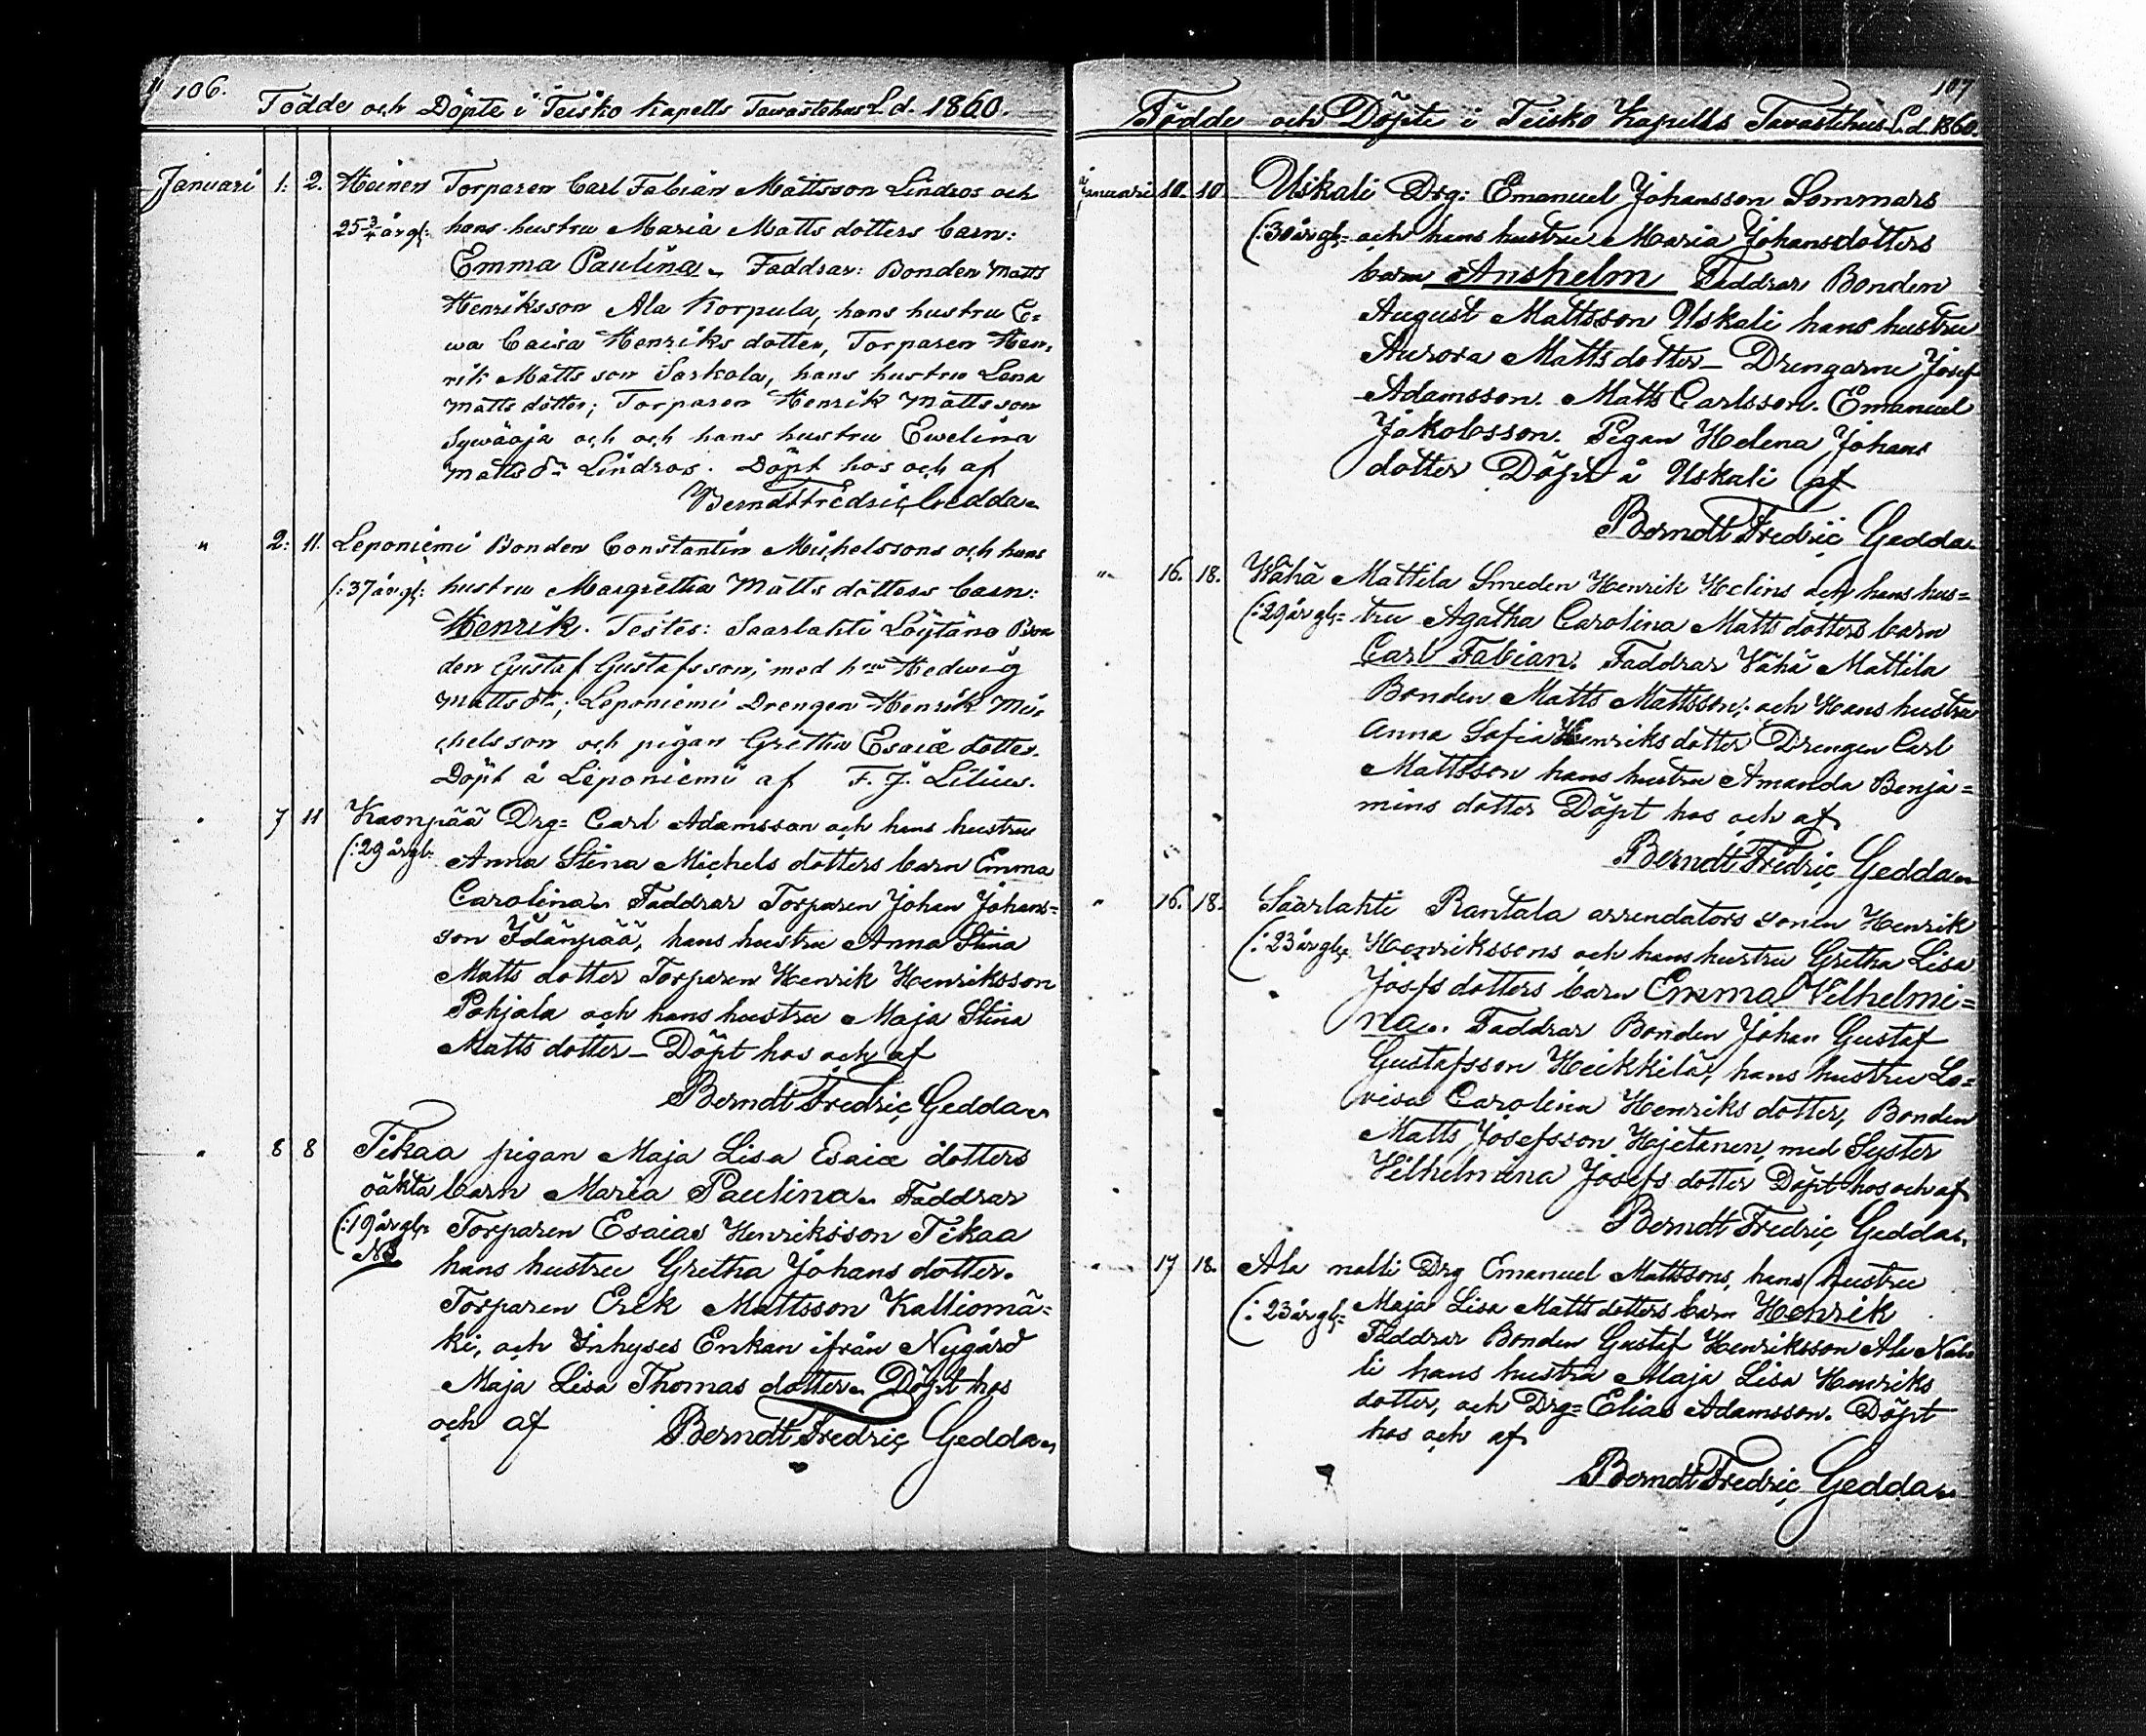 106.
Födde och Döpte i Teisko Kapells Tawastehus L d. 1860.
Januari 1: 2. Heinen Torparen Carl Fabian Mattsson Lindros och
25 3/4 år gl: hans hustru Maria Matts dotters barn:
Emma Paulina. Faddrar: Bonden Matts
Henriksson Ala Korpula, hans hustru E=
wa Caisa Henriks dotter, Torparen Hen=
rik Matts son Sarkola, hans hustru Lena
Matts dotter; Torparen Henrik Mattsson
Sywäoja och och hans hustru Ewelina
Matts dr Lindros. Döpt hos och af
Berndt Fredric Gedda
" 2: 11. Leponiemi Bonden Constantin Michelssons och hans
/: 37 år gl: hustru Margretha Matts dotters barn:
Henrik. Testes: Saarlahti Löytäno Bon
den Gustaf Gustafsson, med hru Hedwig
Matts dr; Leponiemi Drengen Henrik Mi=
chelsson och pigan Gretha Esaiæ dotter.
Döpt å Leponiemi af F. J. Lilius.
" 7 11 Kaonpää Drg= Carl Adamsson och hans hustru
(: 29 år gl: Anna Stina Michels dotters barn Emma
Carolina. Faddrar Torparen Johan Johans=
son Idänpää, hans hustru Anna Stina
Matts dotter Torparen Henrik Henriksson
Pohjala och hans hustru Maja Stina
Matts dotter – Döpt hos och af
Berndt Fredric Gedda
" 8 8 Tikaa pigan Maja Lisa Esaiæ dotters
oäkta barn Maria Paulina. Faddrar
(: 19 år gl: Torparen Esaias Henriksson Tikaa
NB hans hustru Gretha Johans dotter.
Torparen Erik Mattsson Kalliomä=
ki, och Inhyses Enkan ifrån Nygård
Maja Lisa Thomas dotter. Döpt hos
och af Berndt Fredric Gedda
107
Födde och Döpte i Teisko Kapells Tavastehus L. d. 1860.
Januari 10. 10. Uskali Drg: Emanuel Johansson Sommars
(: 30 år gl= och hans hustru Maria Johansdotters
barn Anshelm Faddrar Bonden
August Mattsson Uskali hans hustru
Aurora Matts dotter – Drengarne Josef
Adamsson. Matts Carlsson. Emanuel
Jakobsson. Pigan Helena Johans
dotter Döpt å Uskali af
Berndt Fredric Gedda
" 16. 18. Wähä Mattila Smeden Henrik Helins och hans hus=
(: 29 år gl= tru Agatha Carolina Matts dotters barn
Carl Fabian. Faddrar Vähä Mattila
Bonden Matts Mattsson, och Hans hustru
Anna Sofia Henriks dotter Drengen Carl
Mattsson hans hustru Amanda Benja=
mins dotter Döpt hos och af
Berndt Fredric Gedda
" 16. 18. Saarlahti Rantala arrendators sonen Henrik
(: 23 år gl= Henrikssons och hans hustru Gretha Lisa
Josefs dotters barn Emma Vilhelmi=
na. Faddrar Bonden Johan Gustaf
Gustafsson Heikkilä, hans hustru Lo=
visa Carolina Henriks dotter, Bonden
Matts Josefsson Hjetanen, med Syster
Vilhelmina Josefs dotter Döpt hos och af
Berndt Fredric Gedda
" 17 18. Ala nalli Drg Emanuel Mattssons, hans hustru
(: 23 år gl= Maja Lisa Matts dotters barn Henrik
Faddrar Bonden Gustaf Henriksson Ala Nal=
li hans hustru Maja Lisa Henriks
dotter, och Drg= Elias Adamsson. Döpt
hos och af
Berndt Fredric Gedda